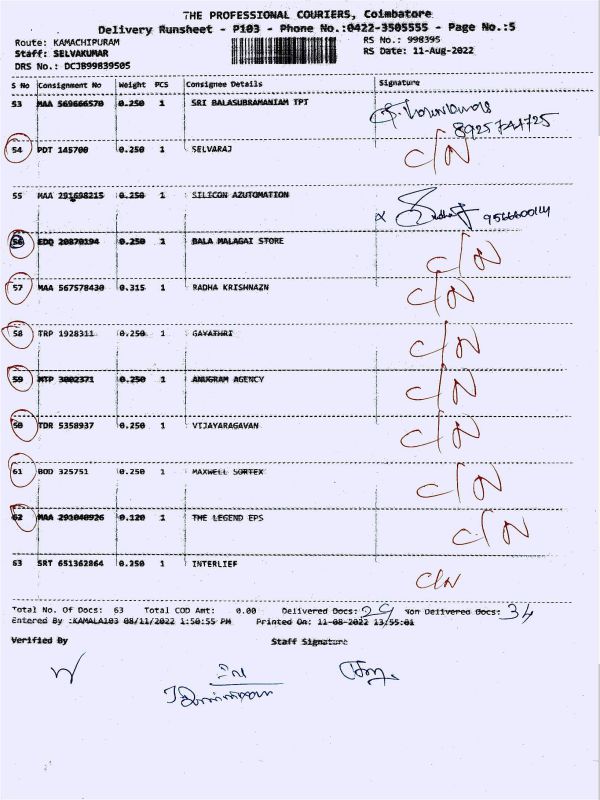 THE PROFESSIONAL COURIERS, Coimbatore
Delivery Runsheet - P103 - Phone No.:0422-3505555 - Page No.:5
Route: KAMACHIPURAM RS No.: 998395
Staff: SELVAKUMAR RS Date: 11-Aug-2022
DRS No.: DCJB99839505
S No Consignment No Weight PCS Consignee Details Signature
53 MAA 569666570 0.250 1 SRI BALASUBRAMANIAM TPT
8925744725
54 PDT 145700 0.250 1 SELVARAJ C/N
55 MAA 291698215 0.250 1 SILICON AZUTOMATION
56 EDQ 20870194 0.250 1 BALA MALAGAI STORE C/N
57 MAA 567578430 0.315 1 RADHA KRISHNAZN C/N
58 TRP 1928311 0.250 1 GAYATHRI C/N
59 MTP 3002371 0.250 1 ANUGRAM AGENCY C/N
60 TDR 5358937 0.250 1 VIJAYARAGAVAN C/N
61 BOD 325751 0.250 1 MAXWELL SORTEX C/N
62 MAA 291040926 0.120 1 THE LEGEND EPS C/N
63 SRT 651362864 0.250 1 INTERLIEF C/N
Total No. Of Docs: 63 Total COD Amt: 0.00 Delivered Docs: 29 Non Delivered Docs: 34
Entered By :KAMALA103 08/11/2022 1:50:55 PM Printed On: 11-08-2022 13:55:01
Verified By Staff Signature